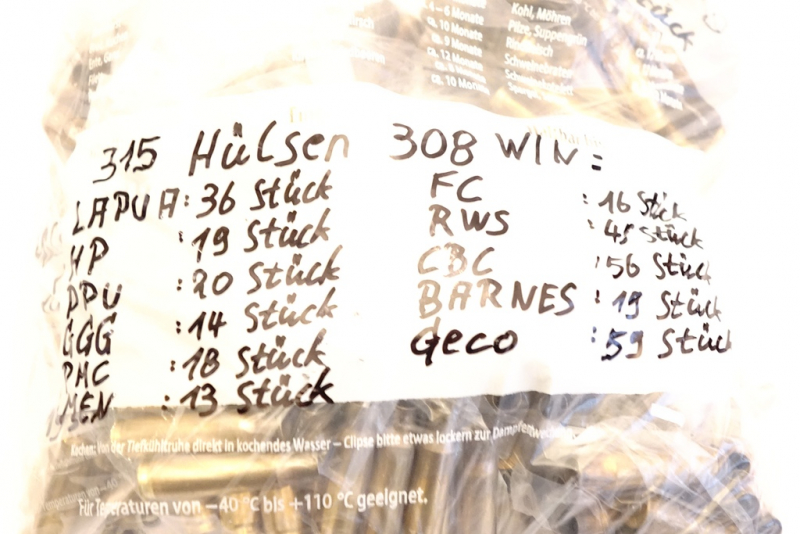 4–6 Monate
ca. 10 Monate
ca. 9 Monate
ca. 12 Monate
ca. 10 Monate
Kohl, Möhren
315 Hülsen 308 WIN =
LAPUA : 36 Stück
HP : 19 Stück
PPU : 20 Stück
GGG : 14 Stück
PMC : 18 Stück
MEN : 13 Stück
FC : 16 Stück
RWS : 45 Stück
CBC : 56 Stück
BARNES : 19 Stück
Geco : 59 Stück
Tiefkühltruhe direkt in kochendes Wasser – Clipse bitte etwas lockern zur
von –40 °C bis +110 °C geeignet.